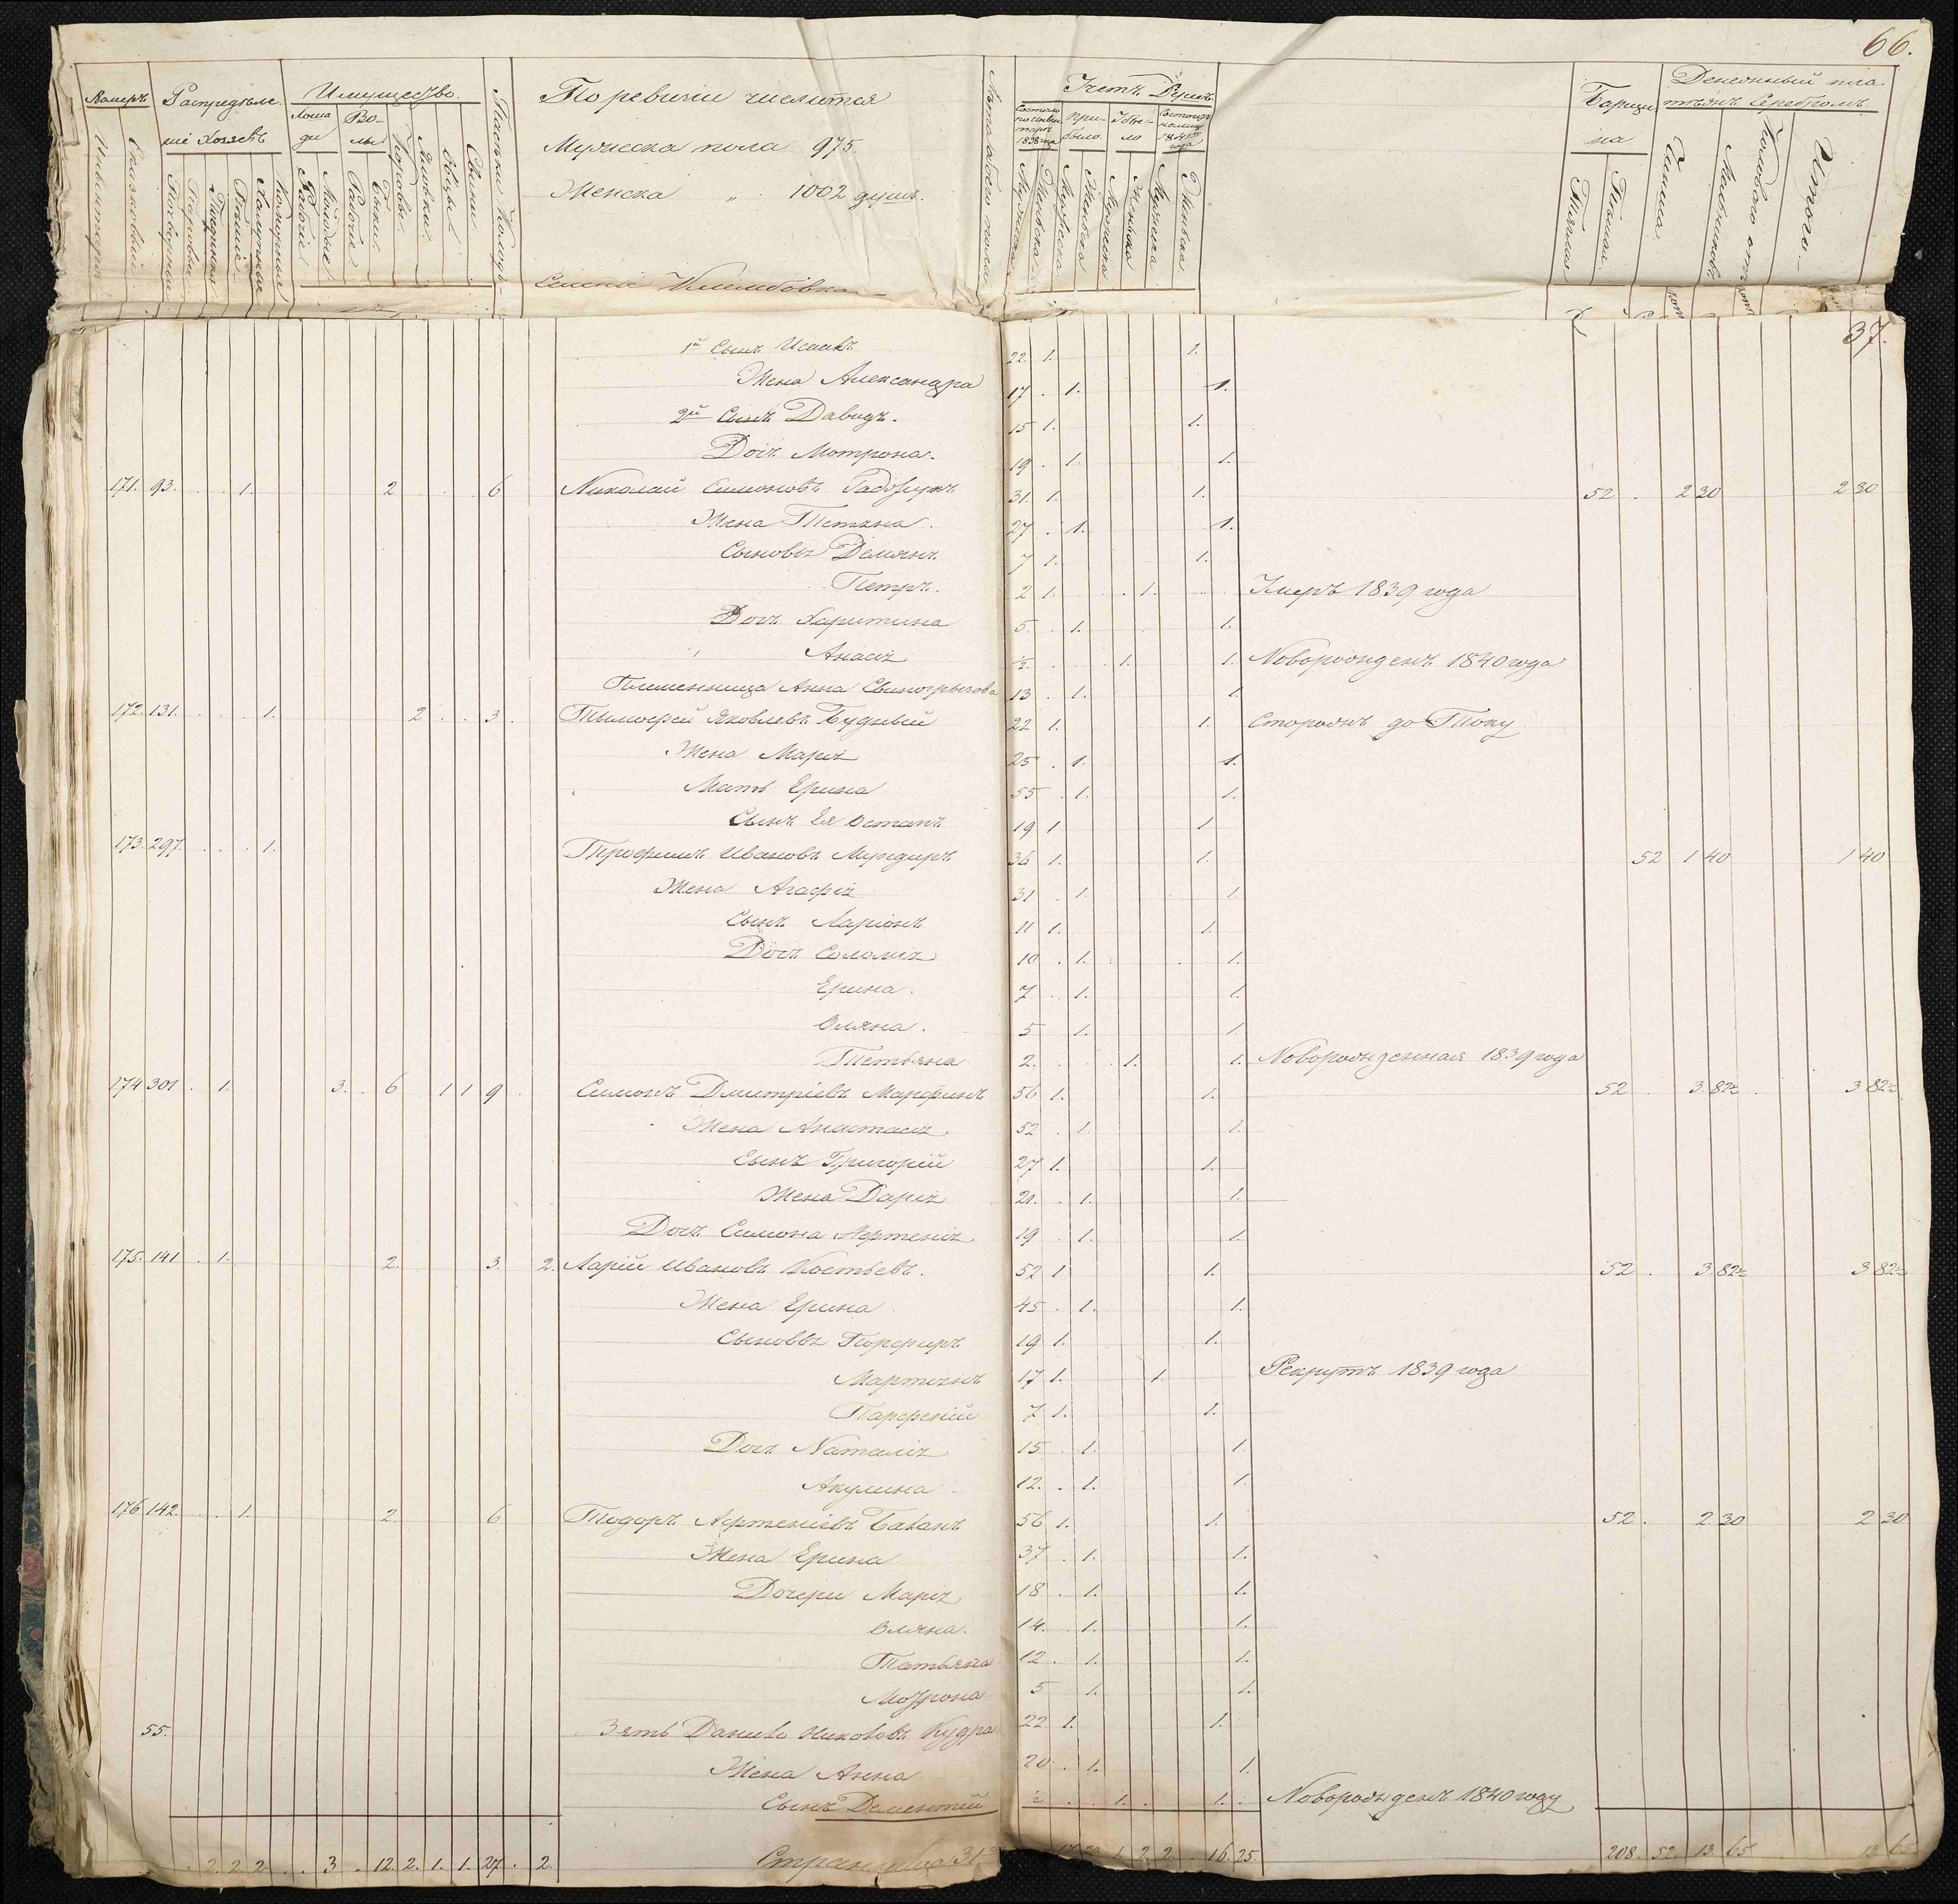 66.
Номеръ
Распредѣле
ніе Хозяевъ
Имущество.
Лоша
ди
Во-
лы
По ревизіи числится
Мужеска пола 975.
Женска " 1002 душъ.
Селеніе
Лѣта
Учетъ Душъ
Состояло по инвен тарю 1838 года
При-
было
Убы-
ло
Барщи
на
Денежный пла
тежъ Серебромъ
Итого
Спиковый
Рабочіе
Молодые
Рабочіе
Быки
Коровы
Яловки
Овцы
Свиньи
Тяглыя
Пѣшая
37.
1й Сынъ Исаакъ 22. 1. 1.
Жена Александра 17 . 1. 1.
2й Сынъ Давидъ. 15 1. 1.
Дочъ Мотрона. 19 . 1. 1.
171. 93. . . 1. 2 . . . 6 Николай Симоновъ 31. 1. 1. 52 . 2 30 2 30
Жена Тетяна. 27 . 1. 1.
Сыновья Демянъ 7 1. 1.
Петръ. 2 1. . 1. Умеръ 1839 года
Дочъ Харитина 5. . 1. 1.
" Анасія ½ . . . 1. 1. Новорожденъ 1840 года
Племенница Анна 13 . 1. 1.
172. 131. . . . 1. 2 . . 3. Тымофей Яковлевъ Будный 22 1. 1. Сторожъ до Току
Жена Марія 25 . 1. 1.
Мать Ерина 55 . 1. 1.
Сынъ Ея Остапъ 19 1 1
173. 297. . . . 1. Трофимъ Ивановъ Мундиръ 36 1. 1. 52 1 40 1 40
Жена Агафія 31 . 1. 1.
Сынъ Ларіонъ 11 1. 1.
Дочъ Соломія 10 . 1. 1.
Ерина. 7 . 1. 1.
Оляна. 5 1. 1.
Тетьяна 2. . . . 1. 1. Новорожденная 1839 года
174 301 . 1. 3. . 6 1 1 9 . Симонъ Дмитріевъ Марфинъ 56 1. 1. 52 . 3. 82½ . 3 82½
Жена Анастасія 52 . 1. 1.
Сынъ Григорій 27 1. 1.
Жена Дарія 20. . 1. 1.
Дочъ Симона Артенія 19 . 1. 1.
175. 141 . 1. 2. 3. 2. Ларій Ивановъ Костьевъ. 52 1 1. 52 . 3. 82½ 3 82½
Жена Ерина 45 . 1. 1.
Сыновья Порфиръ 19 1. 1.
Мартинъ 17 1. 1. Рекрутъ 1839 года
Парфеній 7 1. 1.
Дочъ Наталія 15 . 1. 1.
Акулина. 12. . 1. 1.
176 142. . . 1. 2. 6 Тодоръ Артеніевъ Баланъ 56 1. 1. 52 . 2. 30 2 30
Жена Ерина 37 . 1. 1.
Дочери Марія 18 . 1. 1.
Оляна. 14. . 1. 1.
Татьяна 12 . 1. 1.
Мотрона 5 1. 1.
55. Зять Данило Кудра 22 1. 1.
20 . 1. 1.
Жена Анна
Сынъ Дементій ½ . . 1. . 1. . Новорожденъ 1840 году
. 2. 2. 2. . . 3 . 12. 2. 1. 1. 27 . 2. 17 20 1. 2. 2. . 16. 25. 208. 52. 13. 65 13 65